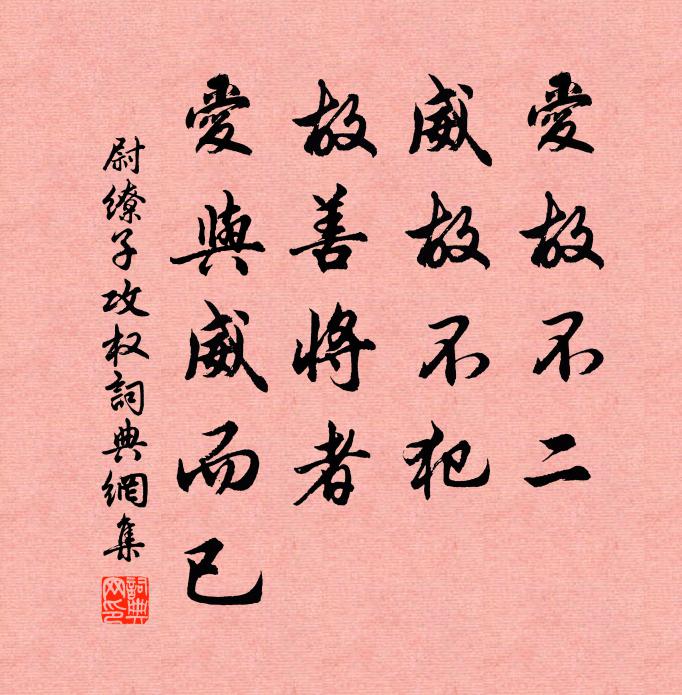 愛故不二
威故不犯
故善將者
愛與威而已
尉繚子攻权詞典網集
詞典
网印